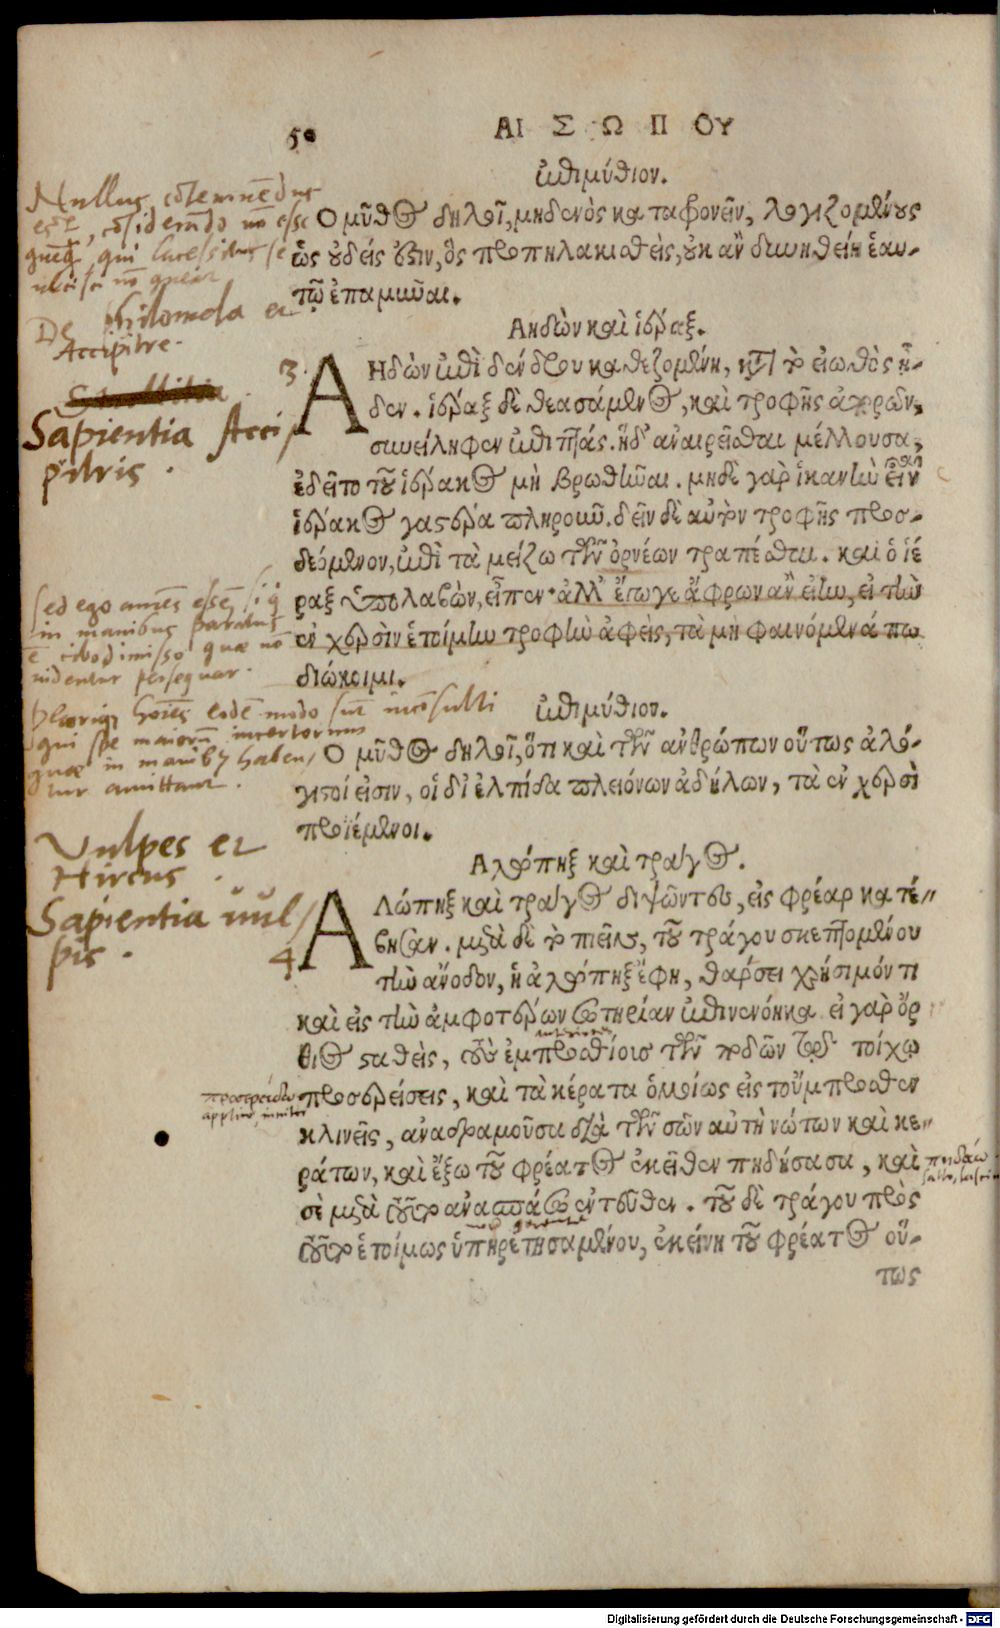 50
ΑΙΣΩΠΟΥ
ἐπιμύθιον.
Ὁ μῦθος δηλοῖ, μηδενὸς καταφρονεῖν, λογιζομένους
ὡς οὐδείς ἐστιν, ὃς προπηλακισθεὶς, οὐκ ἂν δυνηθείη ἑαυ-
τῷ ἐπαμῦναι.
Ἀηδὼν καὶ ἱέραξ.
3.
ΑΗδὼν ἐπὶ δένδρου καθεζομένη, κατὰ τὸ εἰωθὸς ᾖ-
δεν. ἱέραξ δὲ θεασάμενος, καὶ τροφῆς ἀπορῶν,
συνείληφεν ἐπιπτάς. ἡ δ' ἀναιρεῖσθαι μέλλουσα,
ἐδεῖτο τοῦ ἱέρακος μὴ βρωθῆναι. μηδὲ γὰρ ἱκανὴν εἶναι
ἱέρακος γαστέρα πληροῦν. δεῖν δὲ αὐτὸν τροφῆς προσ-
δεόμενον, ἐπὶ τὰ μείζω τῶν ὀρνέων τραπέσθαι. καὶ ὁ ἱέ
ραξ ὑπολαβὼν, εἶπεν· ἀλλ' ἔγωγε ἄφρων ἂν εἴην, εἰ τὴν
ἐν χερσὶν ἑτοίμην τροφὴν ἀφεὶς, τὰ μὴ φαινόμενά πω
διώκοιμι.
ἐπιμύθιον.
Ὁ μῦθος δηλοῖ, ὅτι καὶ τῶν ἀνθρώπων οὕτως ἀλό-
γιστοί εἰσιν, οἱ δι' ἐλπίδα πλειόνων ἀδήλων, τὰ ἐν χερσὶ
προϊέμενοι.
Ἀλώπηξ καὶ τράγος.
4
ΑΛώπηξ καὶ τράγος διψῶντες, εἰς φρέαρ κατέ-
βησαν. μετὰ δὲ τὸ πιεῖν, τοῦ τράγου σκεπτομένου
τὴν ἄνοδον, ἡ ἀλώπηξ ἔφη, θάρσει χρήσιμόν τι
καὶ εἰς τὴν ἀμφοτέρων σωτηρίαν ἐπινενόηκα. εἰ γὰρ ὄρ
θιος σταθεὶς, τοὺς ἐμπροσθίους τῶν ποδῶν τῷ τοίχῳ
προσερείσεις, καὶ τὰ κέρατα ὁμοίως εἰς τοὔμπροσθεν
κλινεῖς, ἀναδραμοῦσα διὰ τῶν σῶν αὐτὴ νώτων καὶ κε-
ράτων, καὶ ἔξω τοῦ φρέατος ἐκεῖθεν πηδήσασα, καὶ
σὲ μετὰ τοῦτο ἀνασπάσω ἐντεῦθεν. τοῦ δὲ τράγου πρὸς
τοῦτο ἑτοίμως ὑπηρετησαμένου, ἐκείνη τοῦ φρέατος οὕ-
τως
Nullus cōtemnēdus
est, cōsiderādo nō esse
qui lacessitus se
ulcisci nō queat
De Philomela et
Accipitre.
Sapientia Acci
pitris.
sed ego amēs essē, si q
in manibus paratus
ē cibo dimisso quae nō
uidentur persequar.
hoīes eodē modo sūt incōsulti
qui spe maiorū incertorum
quae in manibꝰ haben/
tur amittant.
Vulpes et
Hircus.
Sapientia uul/
pis.
προσερείδω
applico, innitor
πηδάω
salto,
Digitalisierung gefördert durch die Deutsche Forschungsgemeinschaft - DFG